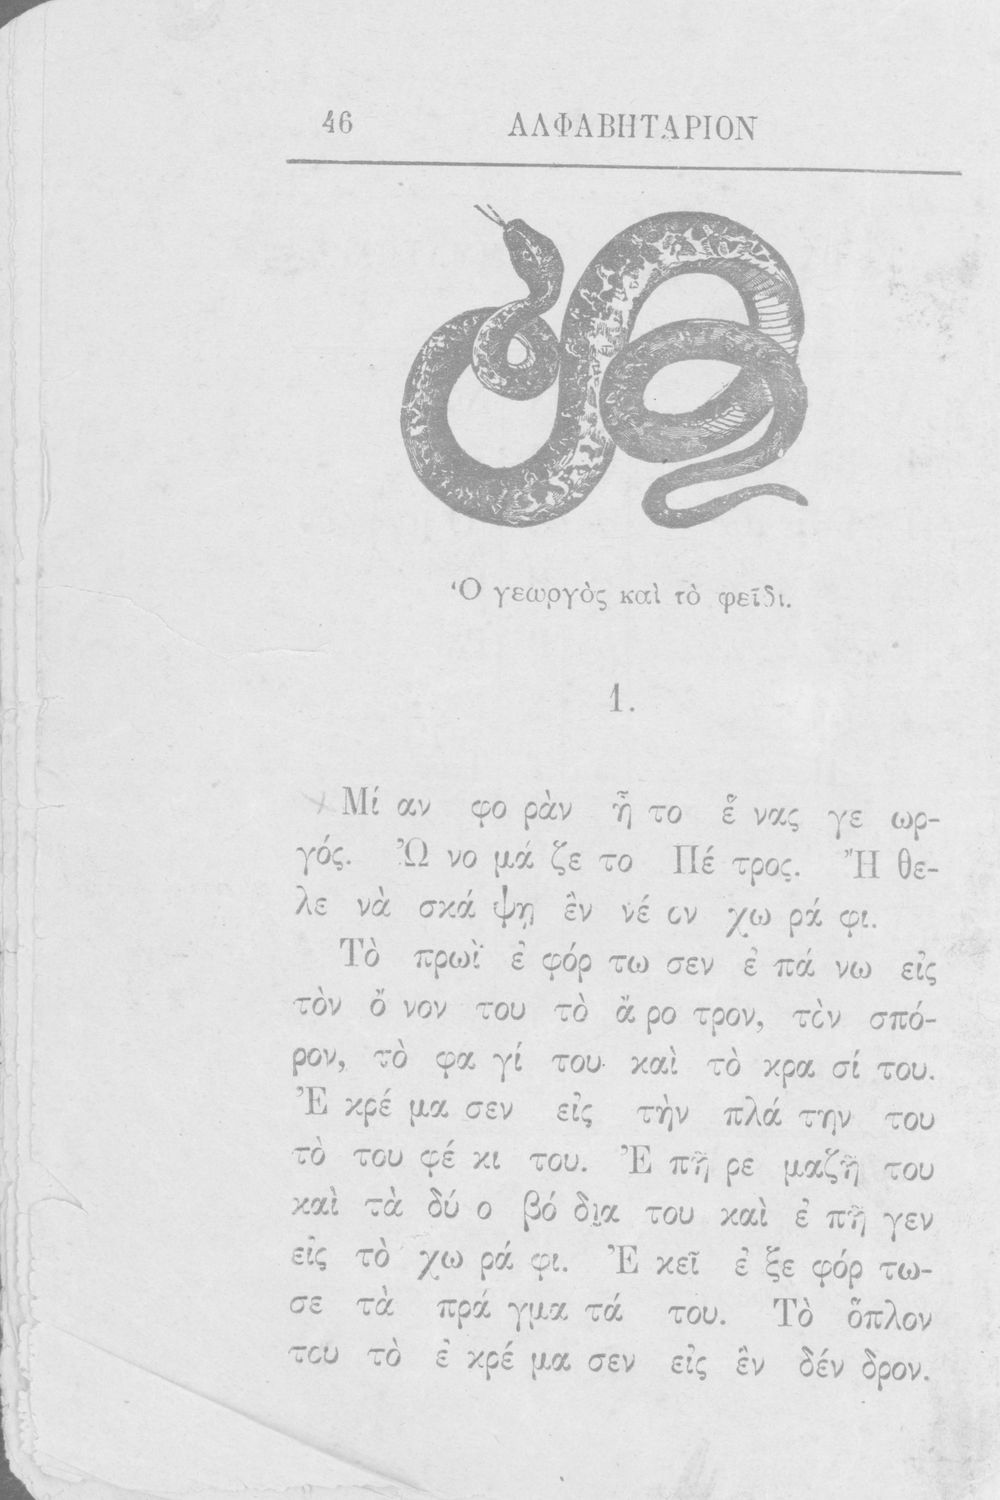 46 ΑΛΦΑΒΗΤΑΡΙΟΝ
Ὁ γεωργὸς καὶ τὸ φεῖδι.
1.
Μί αν φο ρὰν ἦ το ἕ νας γε ωρ-
γός. Ὠ νο μά ζε το Πέ τρος. Ἤ θε-
λε νὰ σκά ψῃ ἓν νέ ον χω ρά φι.
Τὸ πρωῒ ἐ φόρ τω σεν ἐ πά νω εἰς
τὸν ὄ νον του τὸ ἄ ρο τρον, τὸν σπό-
ρον, τὸ φα γί του καὶ τὸ κρα σί του.
Ἐ κρέ μα σεν εἰς τὴν πλά την του
τὸ του φέ κι του. Ἐ πῆ ρε μαζῆ του
καὶ τὰ δύ ο βό δια του καὶ ἐ πῆ γεν
εἰς τὸ χω ρά φι. Ἐ κεῖ ἐ ξε φόρ τω-
σε τὰ πρά γμα τά του. Τὸ ὅπλον
του τὸ ἐ κρέ μα σεν εἰς ἓν δέν δρον.